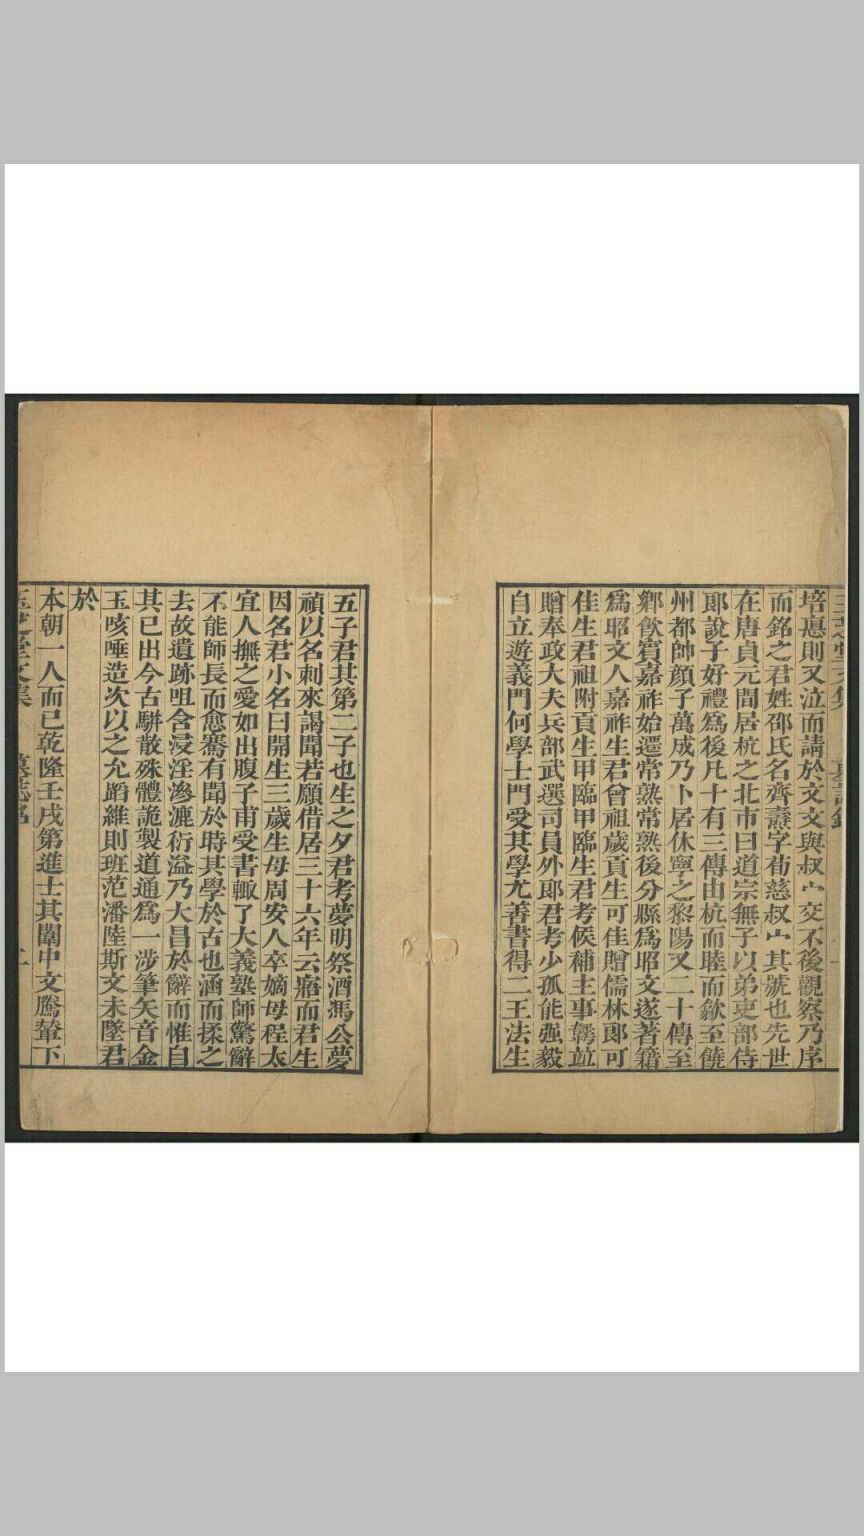 培悳則又泣而請於文文與叔宀交不後觀察乃序
而銘之君姓邵氏名齊燾字荀慈叔宀其號也先世
在唐貞元間居杭之北市曰道宗無子以弟吏部侍
郎說子好禮爲後凡十有三傳由杭而睦而歙至饒
州都帥顔子萬成乃卜居休寧之黎陽又二十傳至
鄉飲賓嘉祚始遷常熟常熟後分縣爲昭文遂著籍
爲昭文人嘉祚生君曾祖歲貢生可佳贈儒林郎可
佳生君祖附貢生甲臨甲臨生君考候補主事韡竝
贈奉政大夫兵部武選司員外郎君考少孤能强毅
自立遊義門何學士門受其學尤善書得二王法生
五子君其第二子也生之夕君考夢明祭酒馮公夢
禎以名刺來謁聞若願借居三十六年云寤而君生
因名君小名曰開生三歲生母周安人卒嫡母程太
宜人撫之愛如出腹子甫受書輒了大義塾師驚辭
不能師長而愈騫有聞於時其學於古也涵而揉之
去故遺跡咀含浸淫滲漉衍溢乃大昌於辭而惟自
其已出今古駢散殊體詭製道通爲一涉筆矢音金
玉咳唾造次以之允蹈維則班范潘陸斯文未墜君
於
本朝一人而已乾隆壬戌第進士其闈中文騰輦下
玉芝堂文集 墓誌銘 二